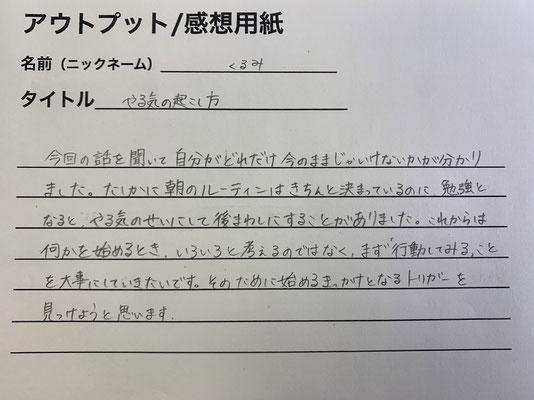 アウトプット/感想用紙
名前（ニックネーム） くるみ
タイトル やる気の起こし方
今回の話を聞いて自分がどれだけ今のままじゃいけないかが分かり
ました。たしかに朝のルーティンはきちんと決まっているのに勉強と
なると、やる気のせいにして後まわしにすることがありました。これからは
何かを始めるとき、いろいろと考えるのではなく、まず行動してみる、こと
を大事にしていきたいです。そのために始めるきっかけとなるトリガーを
見つけようと思います。